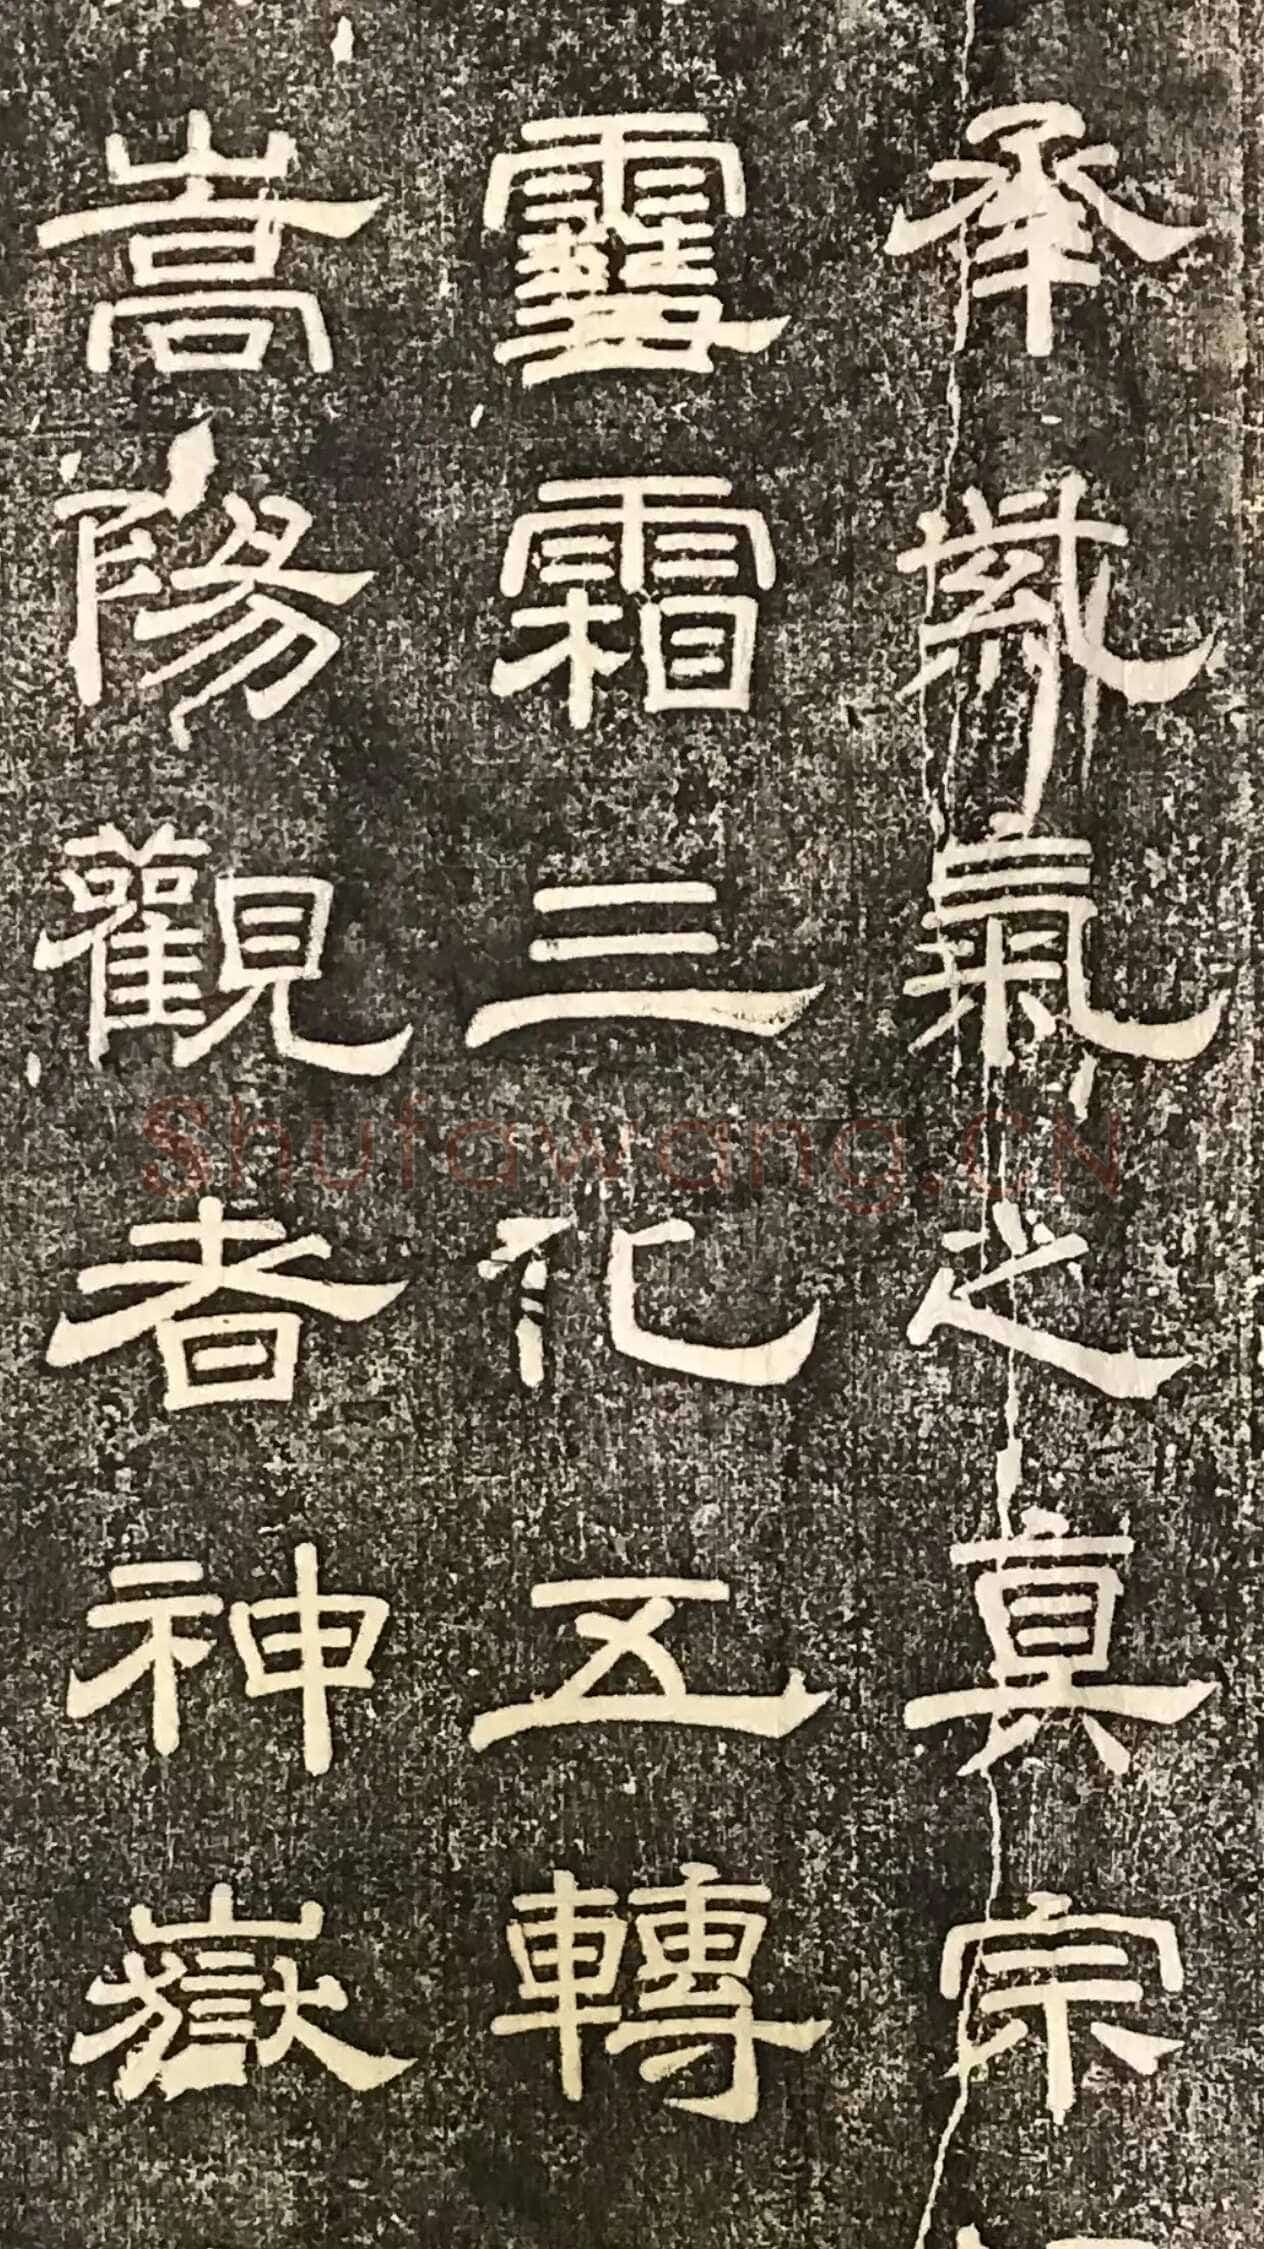 承氣之真宗
䨮霜三化五轉
嵩陽觀者神嶽
Shufawang.CN